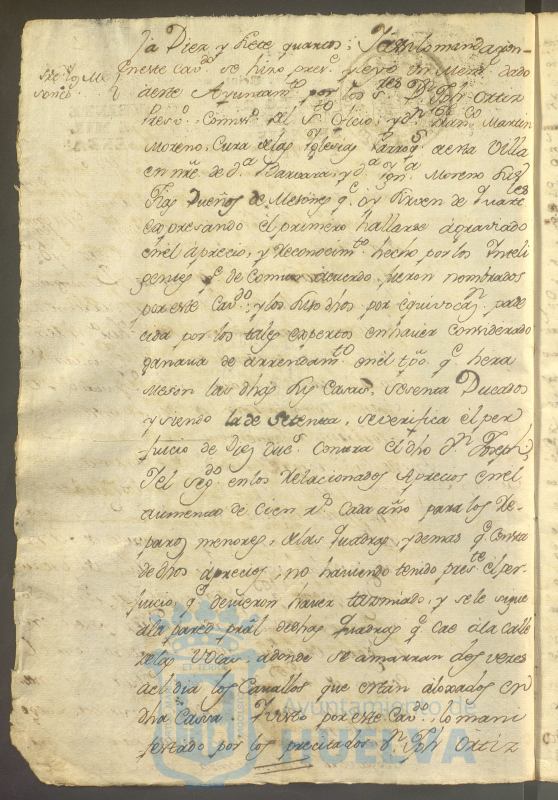 ta Diez y siete quartos; Y assilo mandaron-
En este Cav.do se hizo pres.te y leyo un Mem.l dado
a este Ayuntam.to por los S.res D.n Jph Ortiz
Pres.o Comiss.o del S.to Oficio, y D.n Martin
Moreno, Cura de las Iglesias Parroq.s de esta Villa
en nre de D.a Barbara, y D.a Moreno sus
hijas Dueños de Mesones q.e oy sirven de Quarteles
expresando el primero hallarse agraviado
en el Aprecio, y Reconocim.to hecho por los Inteli
gentes q.e de Comun acuerdo fueron nombrados
por este Cav.do, y los suso dhos por equivocaz.n pade
cida por los tales expertos en haver considerado
ganava de arrendam.to en el tpo. q.e hera
Meson las dhas sus Casas, sesenta Ducados
y siendo la de Setenta, se verifica el per
juicio de diez duc.s contra el dho D.n Joseph,
Y el seg.do en los Relacionados Aprecios en el
aumento de cien r.s cada año para los Re-
paros menores, de las quadras, y demas q.e consta
de dhos aprecios, no haviendo tenido pres.te el per
juicio q.e devieron haver tazmiado, y se le sigue
a la pared pral de dhas quadras q.e cae a la calle
de las Vocas, a donde se amarran dos veces
a el dia los Cavallos que estan aloxados en
dha Cassa. Y visto por este Cav.do lo mani
festado por los precitados D.n Jph Ortiz
Ayuntamiento de
HUELVA